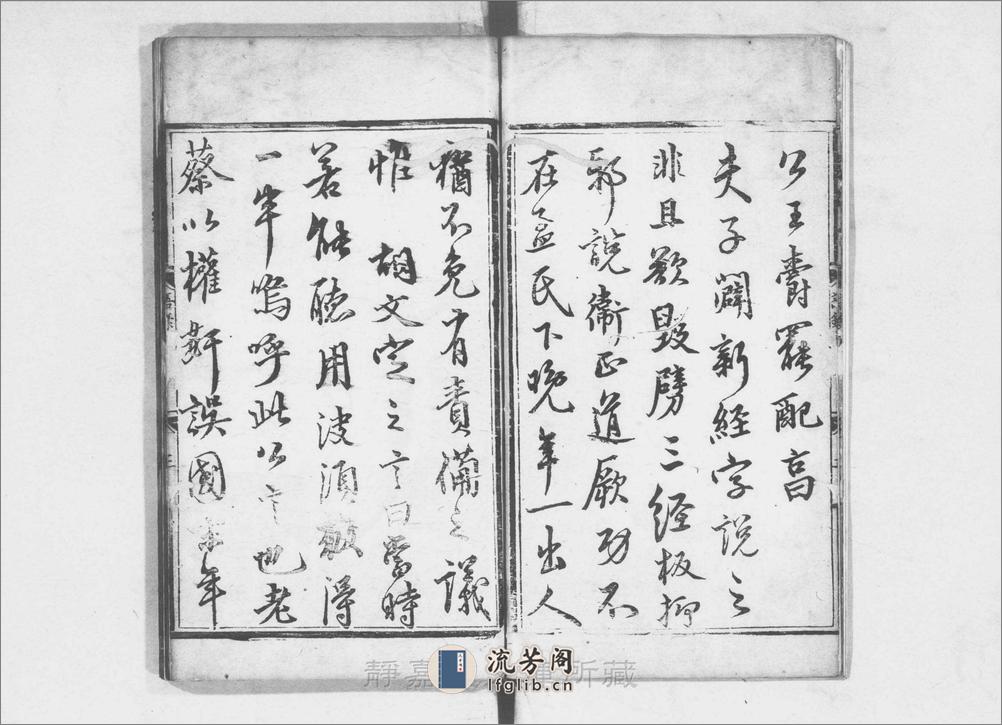 公王爵罷配亯
夫子闢新經字說之
非且欲毀劈三經板抑
邪說衞正道厥功不
在孟氏下晚年一出人
猶不免有責備之議
惟 胡文定之言曰當時
若能聴用決須救淂
一半嗚呼此公言也老
蔡以權奸誤國年
靜嘉 所藏
流芳阁
lfglib.cn